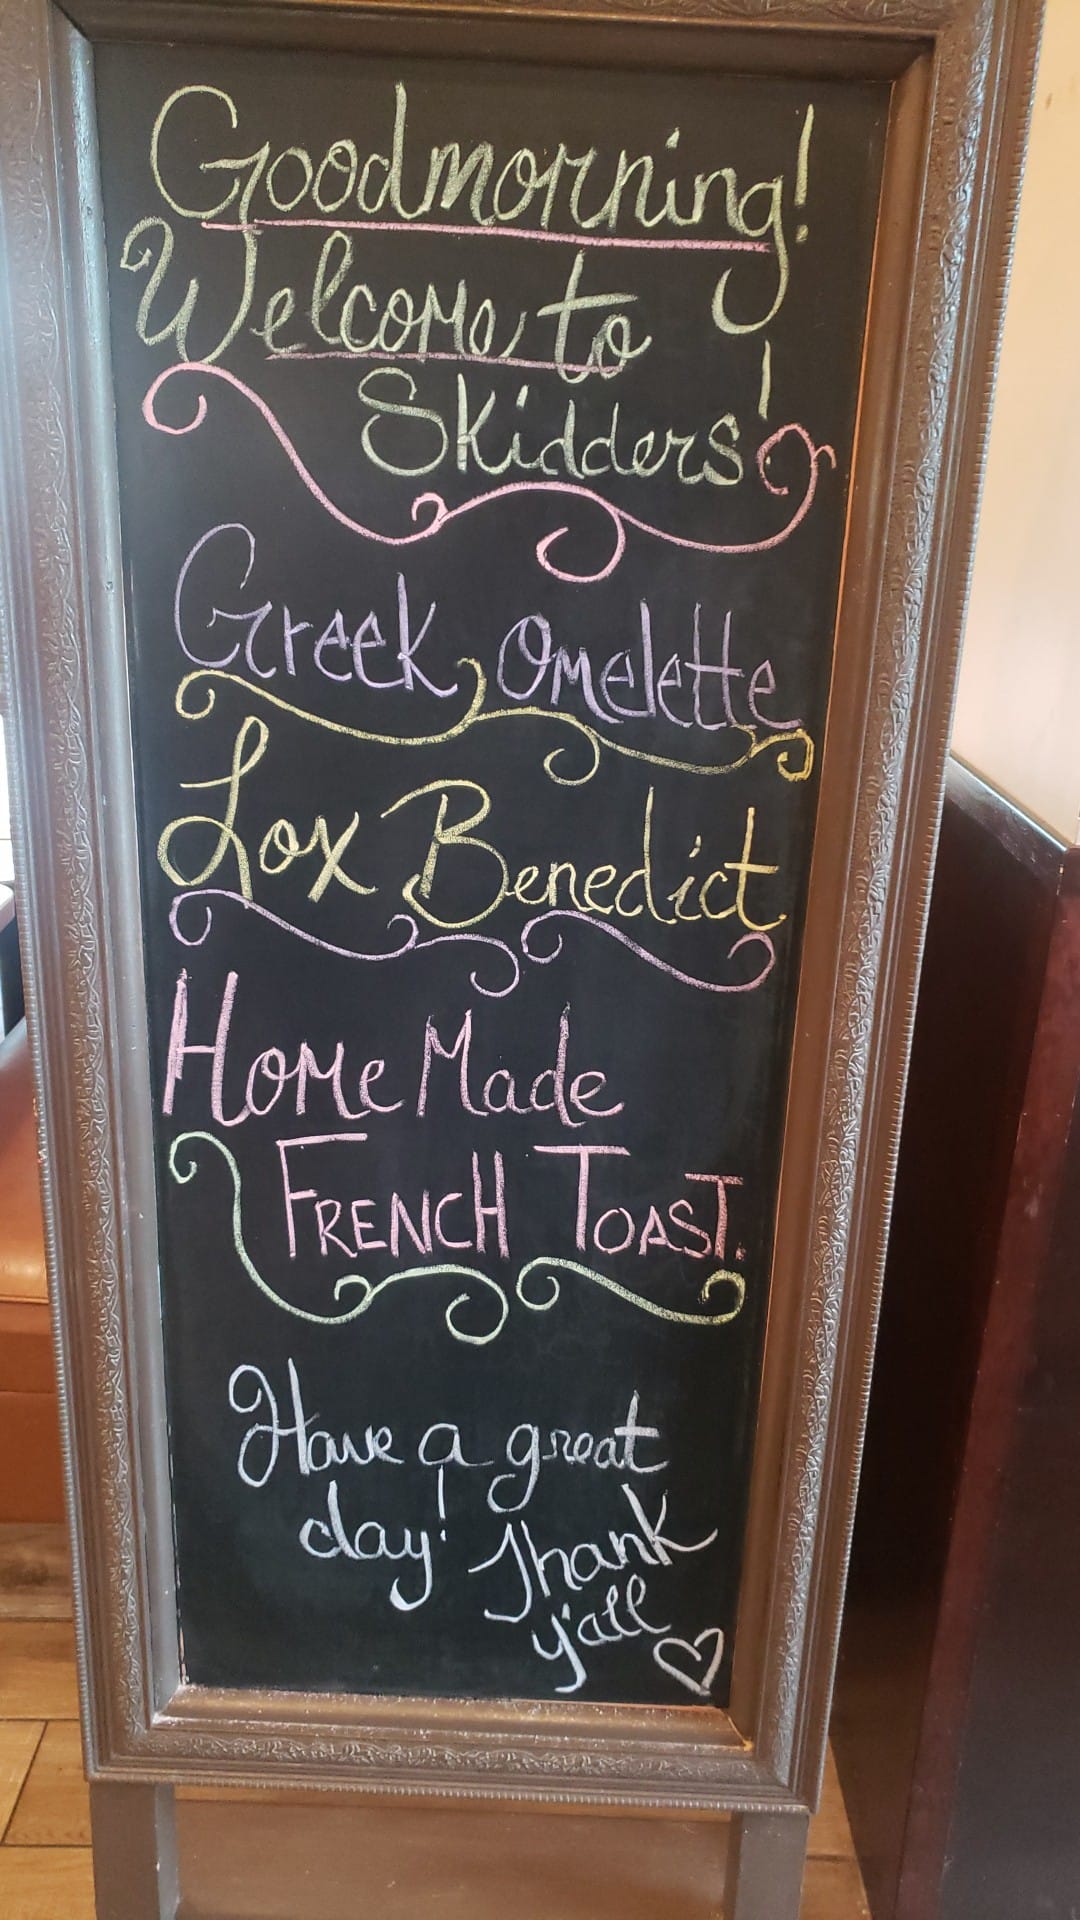 Goodmorning!
Welcome to
Skidders!
Greek Omelette
Lox Benedict
HomeMade
FRENCH TOAST.
Have a great
day! Thank
y'all ♡